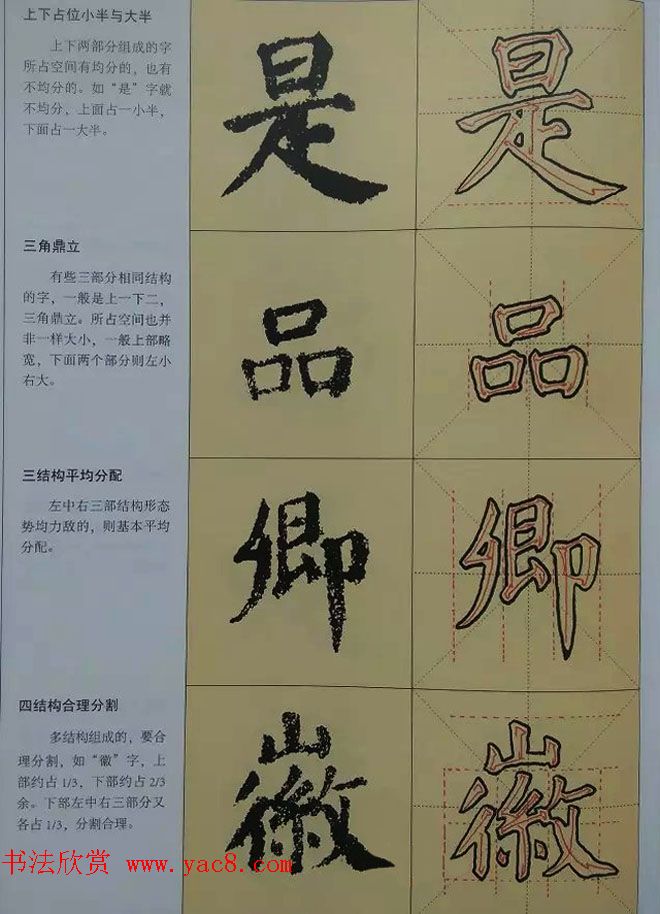 上下占位小半与大半
上下两部分组成的字
所占空间有均分的，也有
不均分的。如“是”字就
不均分，上面占一小半，
下面占一大半。
是 是
三角鼎立
有些三部分相同结构
的字，一般是上一下二，
三角鼎立。所占空间也并
非一样大小，一般上部略
宽，下面两个部分则左小
右大。
品 品
三结构平均分配
左中右三部结构形态
势均力敌的，则基本平均
分配。
卿 卿
四结构合理分割
多结构组成的，要合
理分割，如“徽”字，上
部约占1/3，下部约占2/3
余。下部左中右三部分又
各占1/3，分割合理。
徽 徽
书法欣赏 www.yac8.com